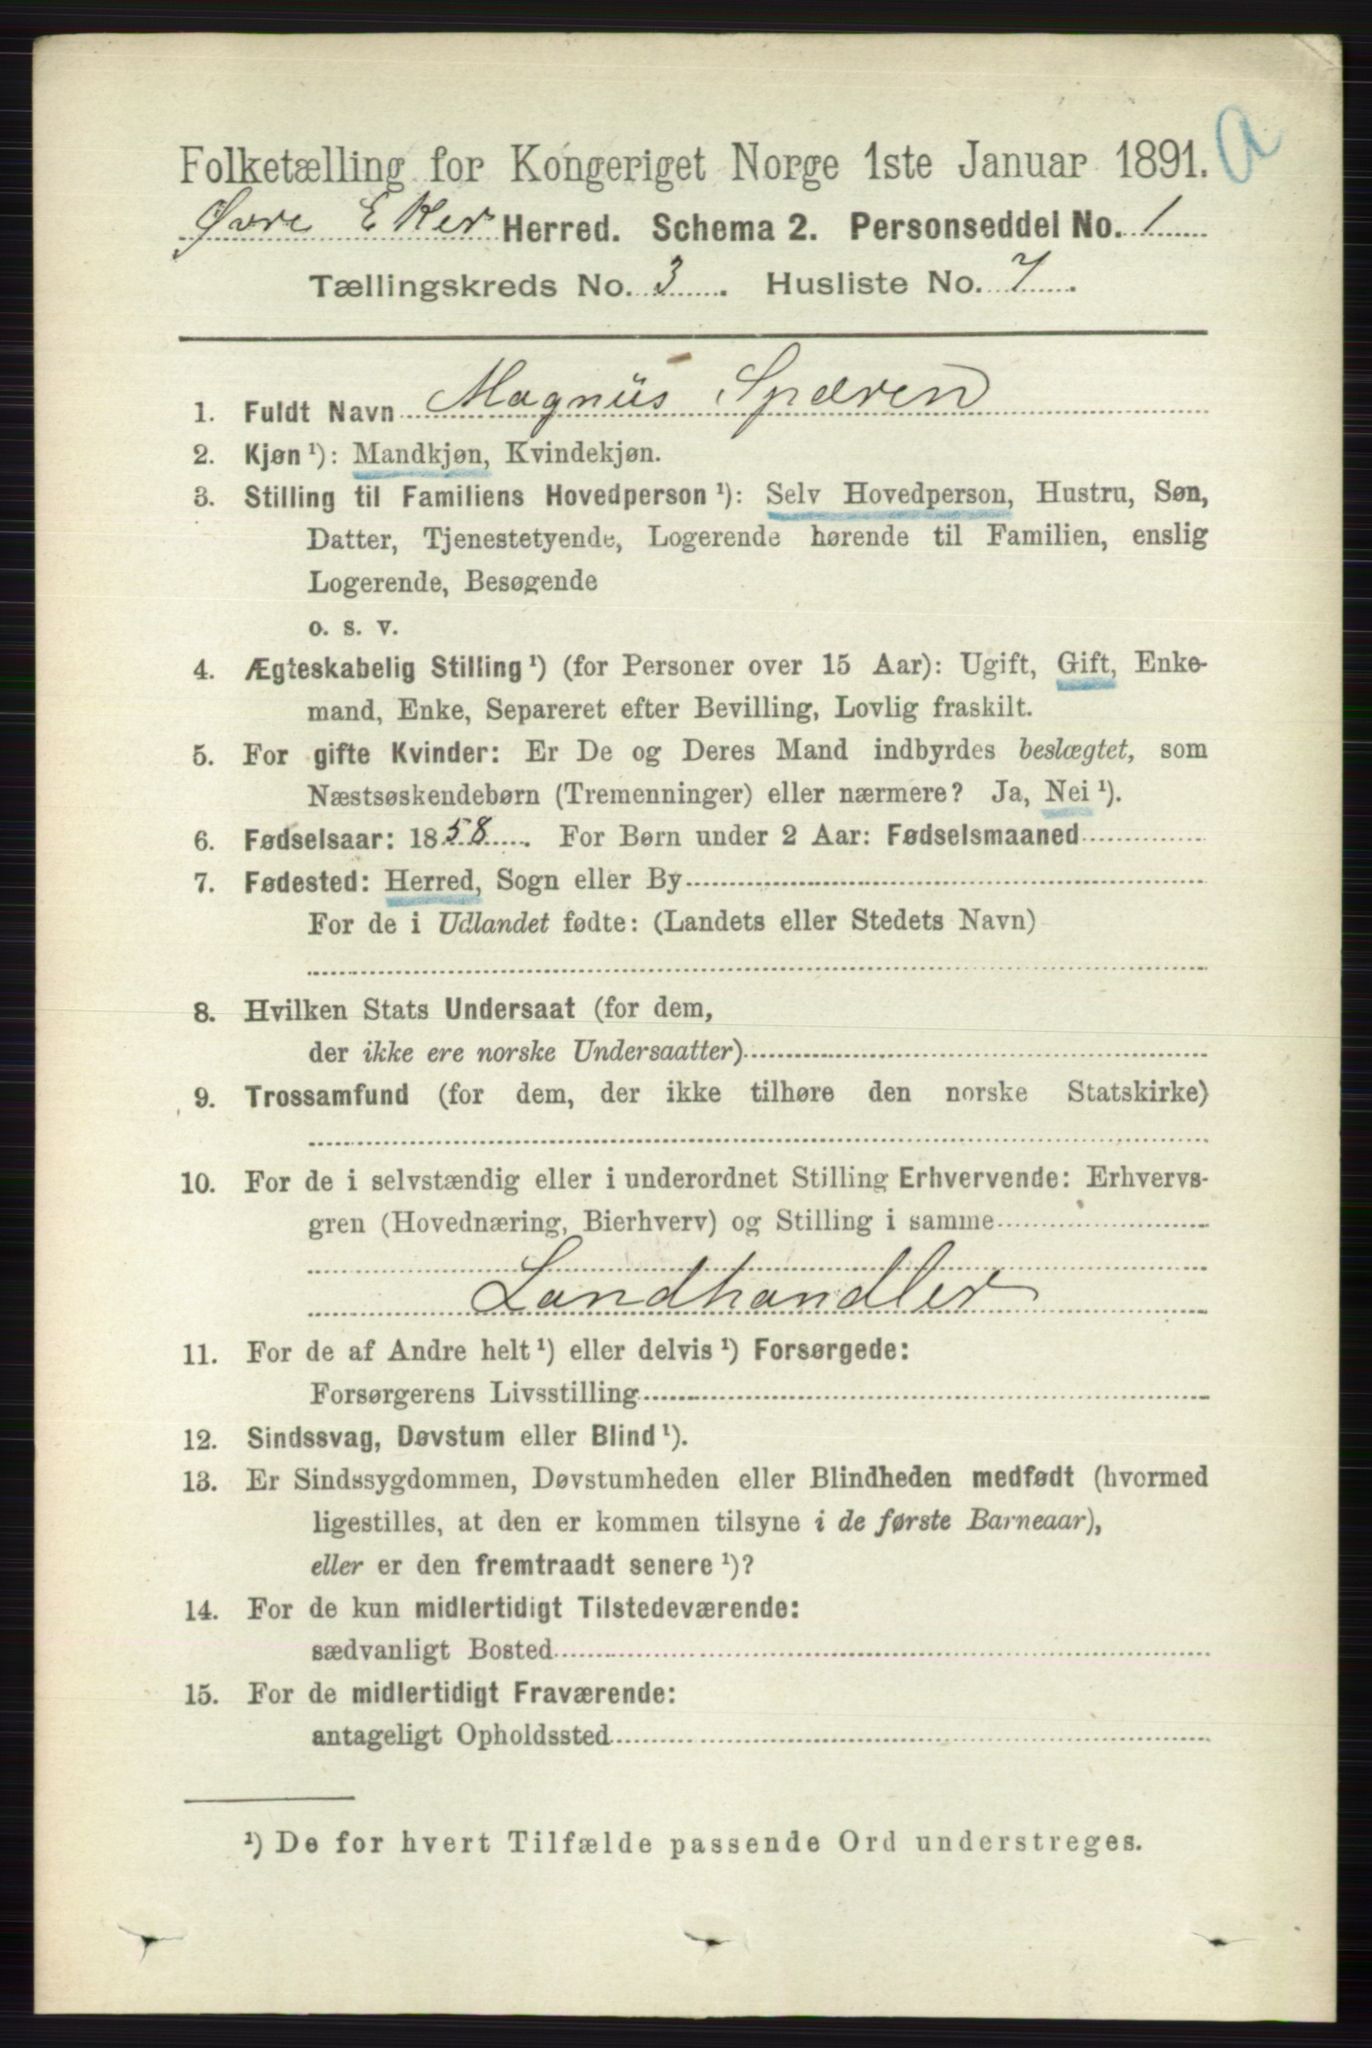 a
Folketælling for Kongeriget Norge 1ste Januar 1891.
Øvre Eker Herred. Schema 2. Personseddel No. 1
Tællingskreds No. 3. Husliste No. 7.
1. Fuldt Navn Magnus Spæren
2. Kjøn ¹): Mandkjøn, Kvindekjøn.
3. Stilling til Familiens Hovedperson ¹): Selv Hovedperson, Hustru, Søn,
Datter, Tjenestetyende, Logerende hørende til Familien, enslig
Logerende, Besøgende
o. s. v.
4. Ægteskabelig Stilling ¹) (for Personer over 15 Aar): Ugift, Gift, Enke-
mand, Enke, Separeret efter Bevilling, Lovlig fraskilt.
5. For gifte Kvinder: Er De og Deres Mand indbyrdes beslægtet, som
Næstsøskendebørn (Tremenninger) eller nærmere? Ja, Nei ¹).
6. Fødselsaar: 1858. For Børn under 2 Aar: Fødselsmaaned
7. Fødested: Herred, Sogn eller By
For de i Udlandet fødte: (Landets eller Stedets Navn)
8. Hvilken Stats Undersaat (for dem,
der ikke ere norske Undersaatter)
9. Trossamfund (for dem, der ikke tilhøre den norske Statskirke)
10. For de i selvstændig eller i underordnet Stilling Erhvervende: Erhvervs-
gren (Hovednæring, Bierhverv) og Stilling i samme
Landhandler
11. For de af Andre helt ¹) eller delvis ¹) Forsørgede:
Forsørgerens Livsstilling
12. Sindssvag, Døvstum eller Blind ¹).
13. Er Sindssygdommen, Døvstumheden eller Blindheden medfødt (hvormed
ligestilles, at den er kommen tilsyne i de første Barneaar),
eller er den fremtraadt senere ¹)?
14. For de kun midlertidigt Tilstedeværende:
sædvanligt Bosted
15. For de midlertidigt Fraværende:
antageligt Opholdssted
¹) De for hvert Tilfælde passende Ord understreges.